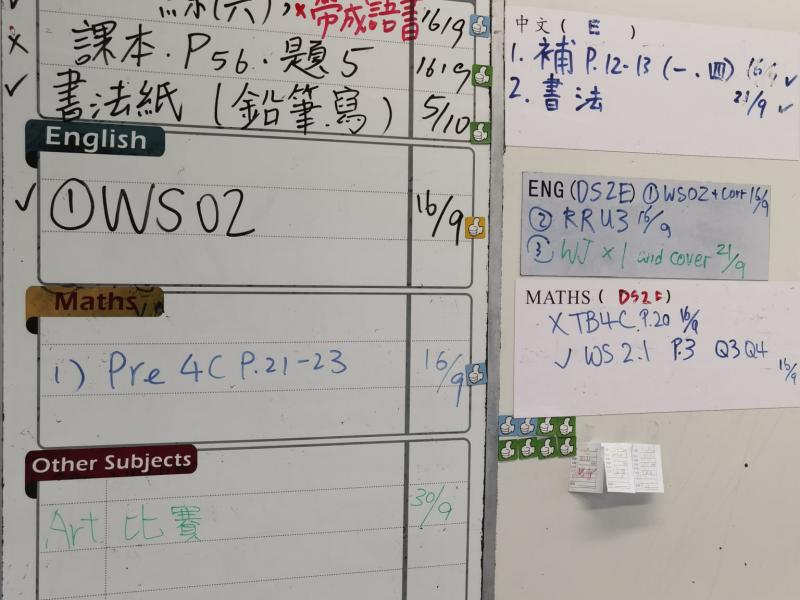 (六), ×帶成語書 16/9
✗ 課本.P56.題5 16.9
✓ 書法紙 (鉛筆寫) 5/10
English
✓ ①WS02 16/9
Maths
1) Pre 4C P.21-23 16/9
Other Subjects
Art 比賽 30/9
中文 ( E )
1. 補 P.12-13 (一、四) 16/9 ✓
2. 書法 21/9 ✓
ENG (DS2E) ① WS02 + Corr 16/9
② RR U3 16/9
③ WJ × 1 and cover 21/9
MATHS ( DS2E )
X TB4C P.20 16/9
✓ WS 2.1 P.3 Q3 Q4 16/9